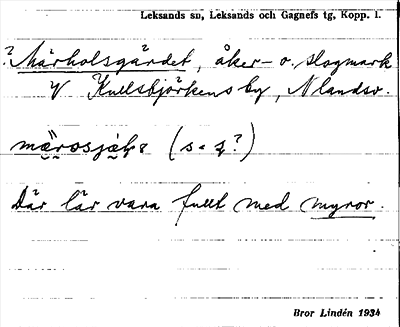 Leksands sn, Leksands och Gagnefs tg, Kopp. l.
? Märholsgärdet, åker- o. slogmark
V Kullsbjörkens by, N landsv.
(s = ?)
Där lär vara fullt med myror.
Bror Lindén 1934